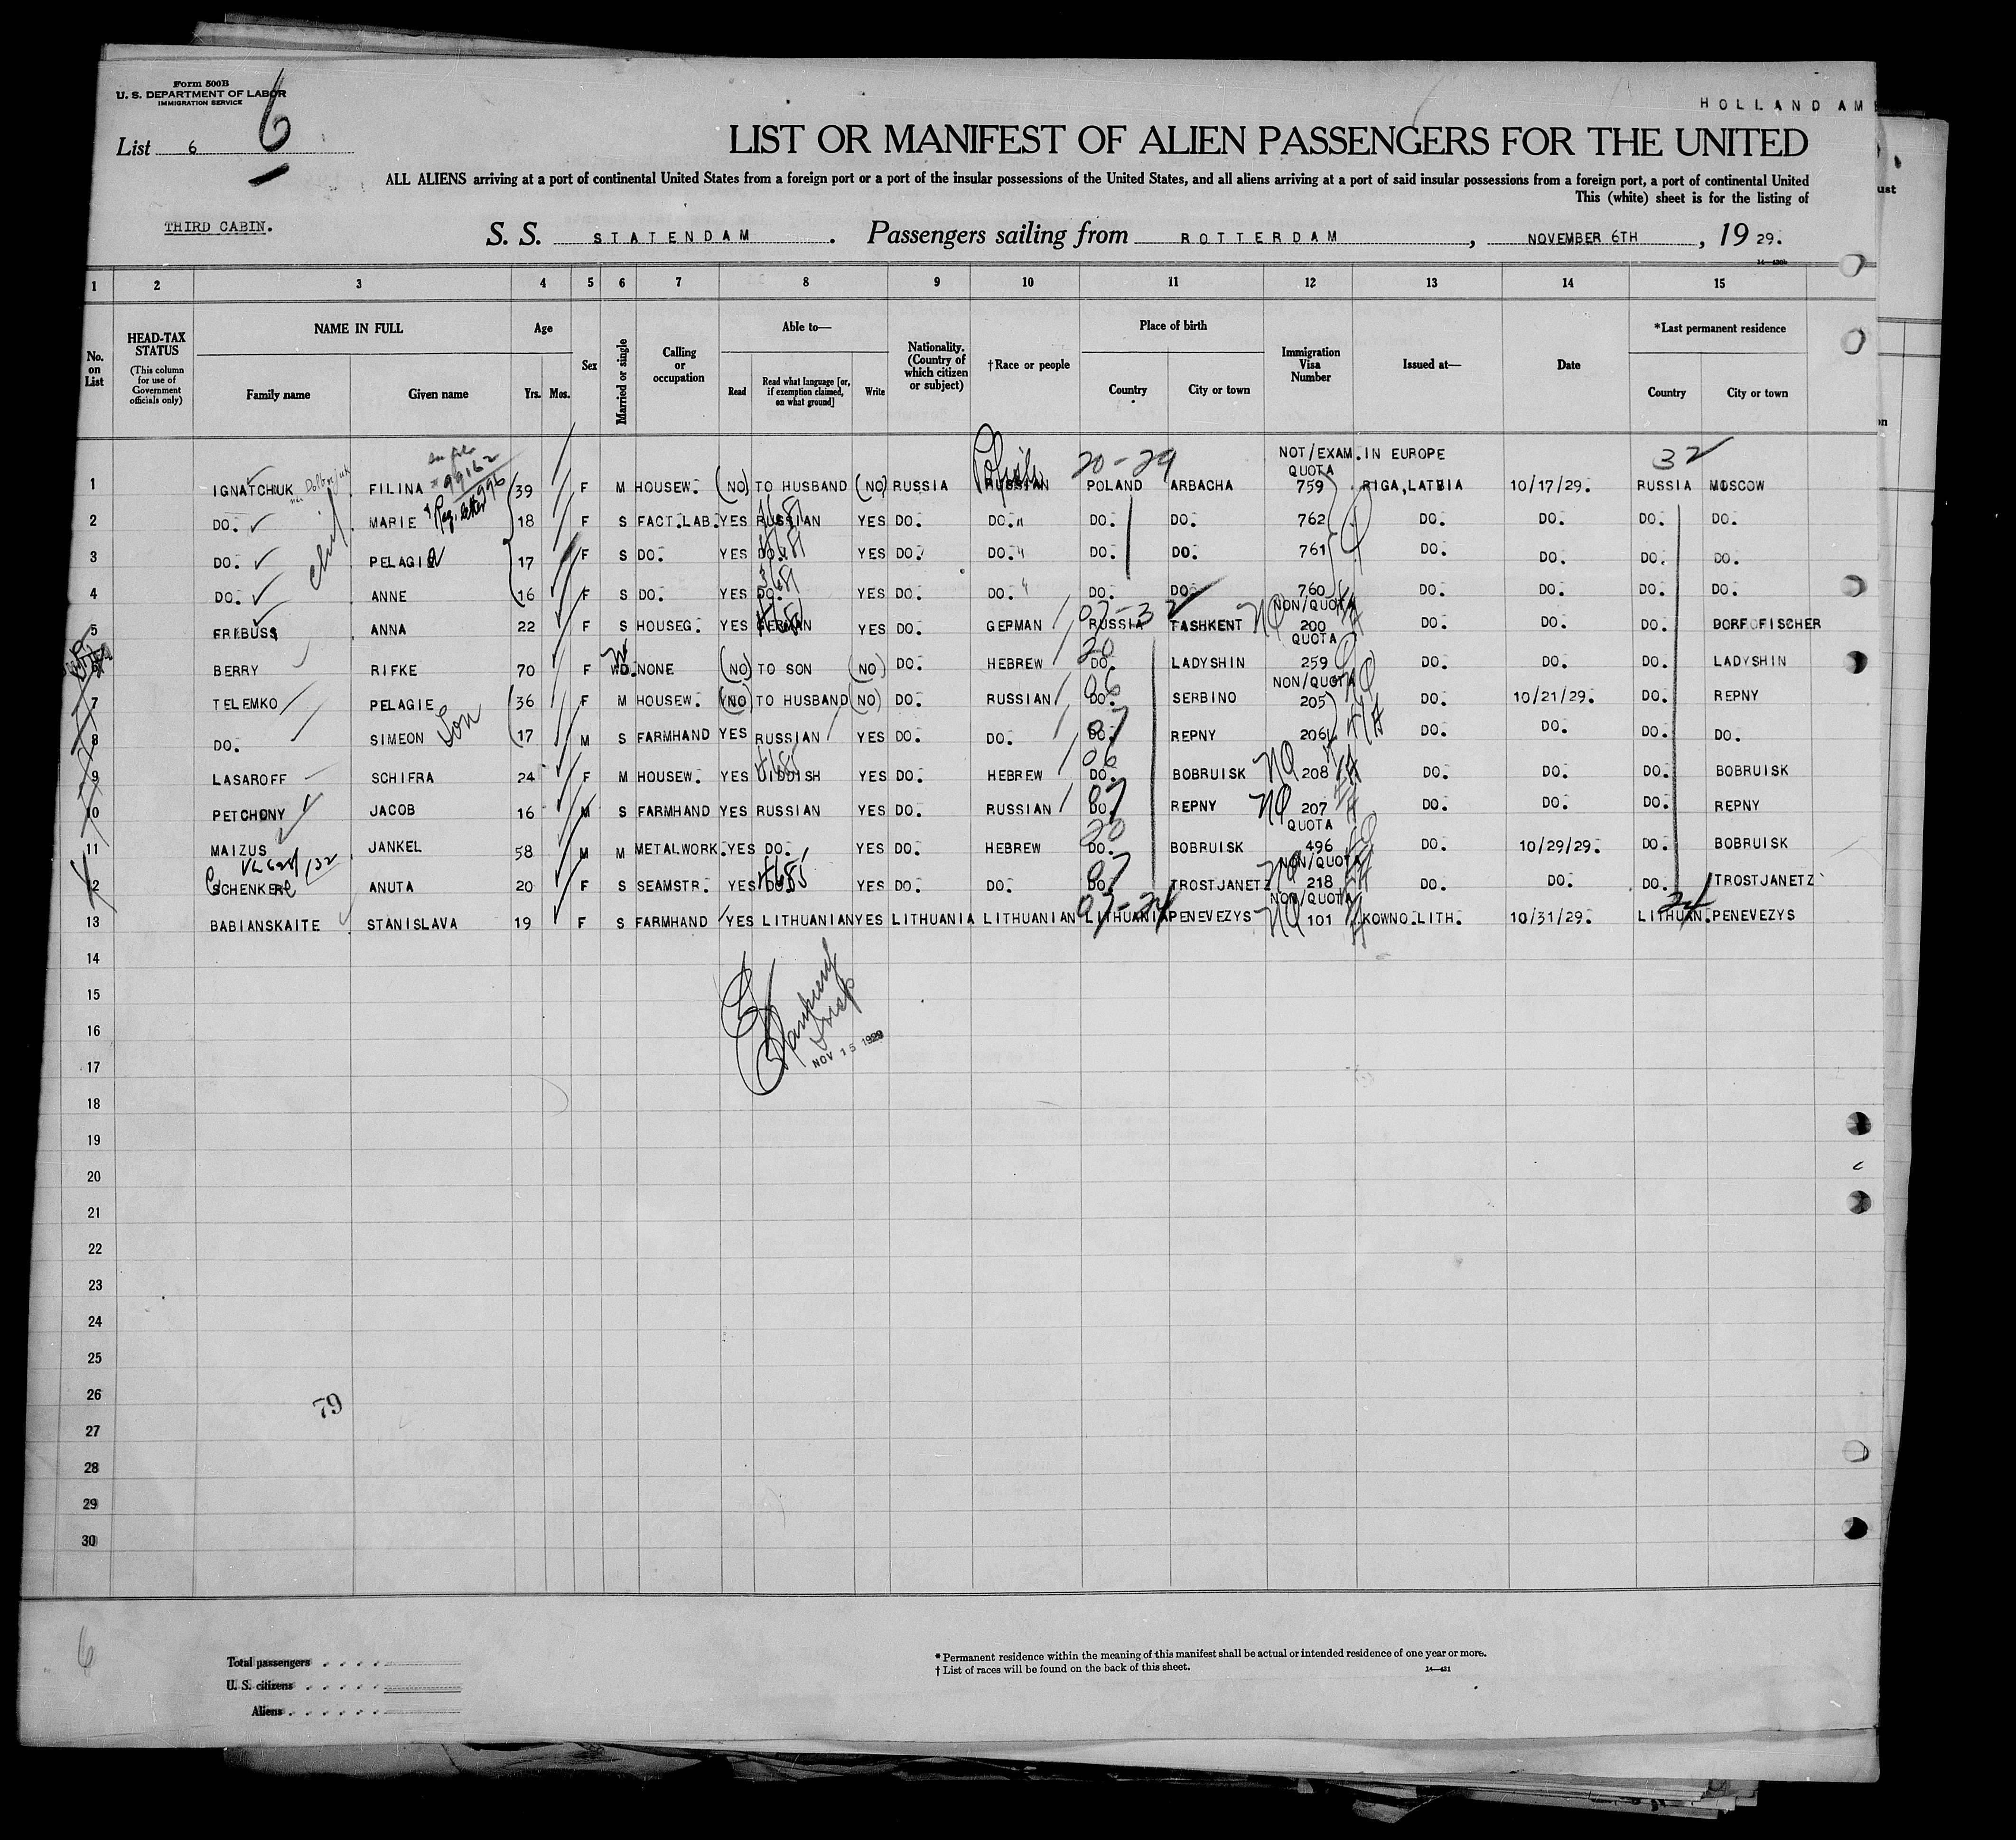 Form 500B
U. S. DEPARTMENT OF LABOR
IMMIGRATION SERVICE
HOLLAND AM
List 6
6
LIST OR MANIFEST OF ALIEN PASSENGERS FOR THE UNITED
ALL ALIENS arriving at a port of continental United States from a foreign port or a port of the insular possessions of the United States, and all aliens arriving at a port of said insular possessions from a foreign port, a port of continental United
This (white) sheet is for the listing of
THIRD CABIN.
S. S. STATENDAM. Passengers sailing from ROTTERDAM, NOVEMBER 6TH, 19 29.
1 2 3 4 5 6 7 8 9 10 11 12 13 14 15
No. on List
HEAD-TAX STATUS
(This column for use of Government officials only)
NAME IN FULL
Family name
Given name
Age
Yrs. Mos.
Sex
Married or single
Calling or occupation
Able to—
Read
Read what language [or, if exemption claimed, on what ground]
Write
Nationality. (Country of which citizen or subject)
†Race or people
Place of birth
Country
City or town
Immigration Visa Number
Issued at—
Date
*Last permanent residence
Country
City or town
99162
Polish
20-29
NOT/EXAM.IN EUROPE
32
QUOTA
1 IGNATCHUK FILINA 39 F M HOUSEW. (NO) TO HUSBAND (NO) RUSSIA RUSSIAN POLAND ARBACHA 759 RIGA,LATVIA 10/17/29. RUSSIA MOSCOW
2 DO. MARIE 18 F S FACT.LAB. YES RUSSIAN YES DO. DO. DO. DO. 762 DO. DO. DO. DO.
3 DO. PELAGIA 17 F S DO. YES DO. YES DO. DO. DO. DO. 761 DO. DO. DO. DO.
4 DO. ANNE 16 F S DO. YES DO. YES DO. DO. DO. DO. 760 DO. DO. DO. DO.
NON/QUOTA
07-32
5 FRIBUSS ANNA 22 F S HOUSEG. YES GERMAN YES DO. GERMAN RUSSIA TASHKENT NQ 200 DO. DO. DO. DORF FISCHER
QUOTA
20
6 BERRY RIFKE 70 F WD. NONE (NO) TO SON (NO) DO. HEBREW DO. LADYSHIN 259 DO. DO. DO. LADYSHIN
NON/QUOTA
06
7 TELEMKO PELAGIE 36 F M HOUSEW. (NO) TO HUSBAND (NO) DO. RUSSIAN DO. SERBINO 205 DO. 10/21/29. DO. REPNY
07
8 DO. SIMEON Son 17 M S FARMHAND YES RUSSIAN YES DO. DO. DO. REPNY 206 DO. DO. DO. DO.
06
9 LASAROFF SCHIFRA 24 F M HOUSEW. YES JIDDISH YES DO. HEBREW DO. BOBRUISK NQ 208 DO. DO. DO. BOBRUISK
07
10 PETCHONY JACOB 16 M S FARMHAND YES RUSSIAN YES DO. RUSSIAN DO. REPNY NQ 207 DO. DO. DO. REPNY
QUOTA
20
11 MAIZUS JANKEL 58 M M METALWORK. YES DO. YES DO. HEBREW DO. BOBRUISK 496 DO. 10/29/29. DO. BOBRUISK
NON/QUOTA
07
12 SCHENKER ANUTA 20 F S SEAMSTR. YES DO. YES DO. DO. DO. TROSTJANETZ NQ 218 DO. DO. DO. TROSTJANETZ
NON/QUOTA
07-24
24
13 BABIANSKAITE STANISLAVA 19 F S FARMHAND YES LITHUANIAN YES LITHUANIA LITHUANIAN LITHUANIA PENEVEZYS NQ 101 KOWNO.LITH. 10/31/29. LITHUAN. PENEVEZYS
14
15
16
NOV 15 1929
17
18
19
20
21
22
23
24
25
26
79
27
28
29
30
6
Total passengers
U. S. citizens
Aliens
* Permanent residence within the meaning of this manifest shall be actual or intended residence of one year or more.
† List of races will be found on the back of this sheet.
14—431